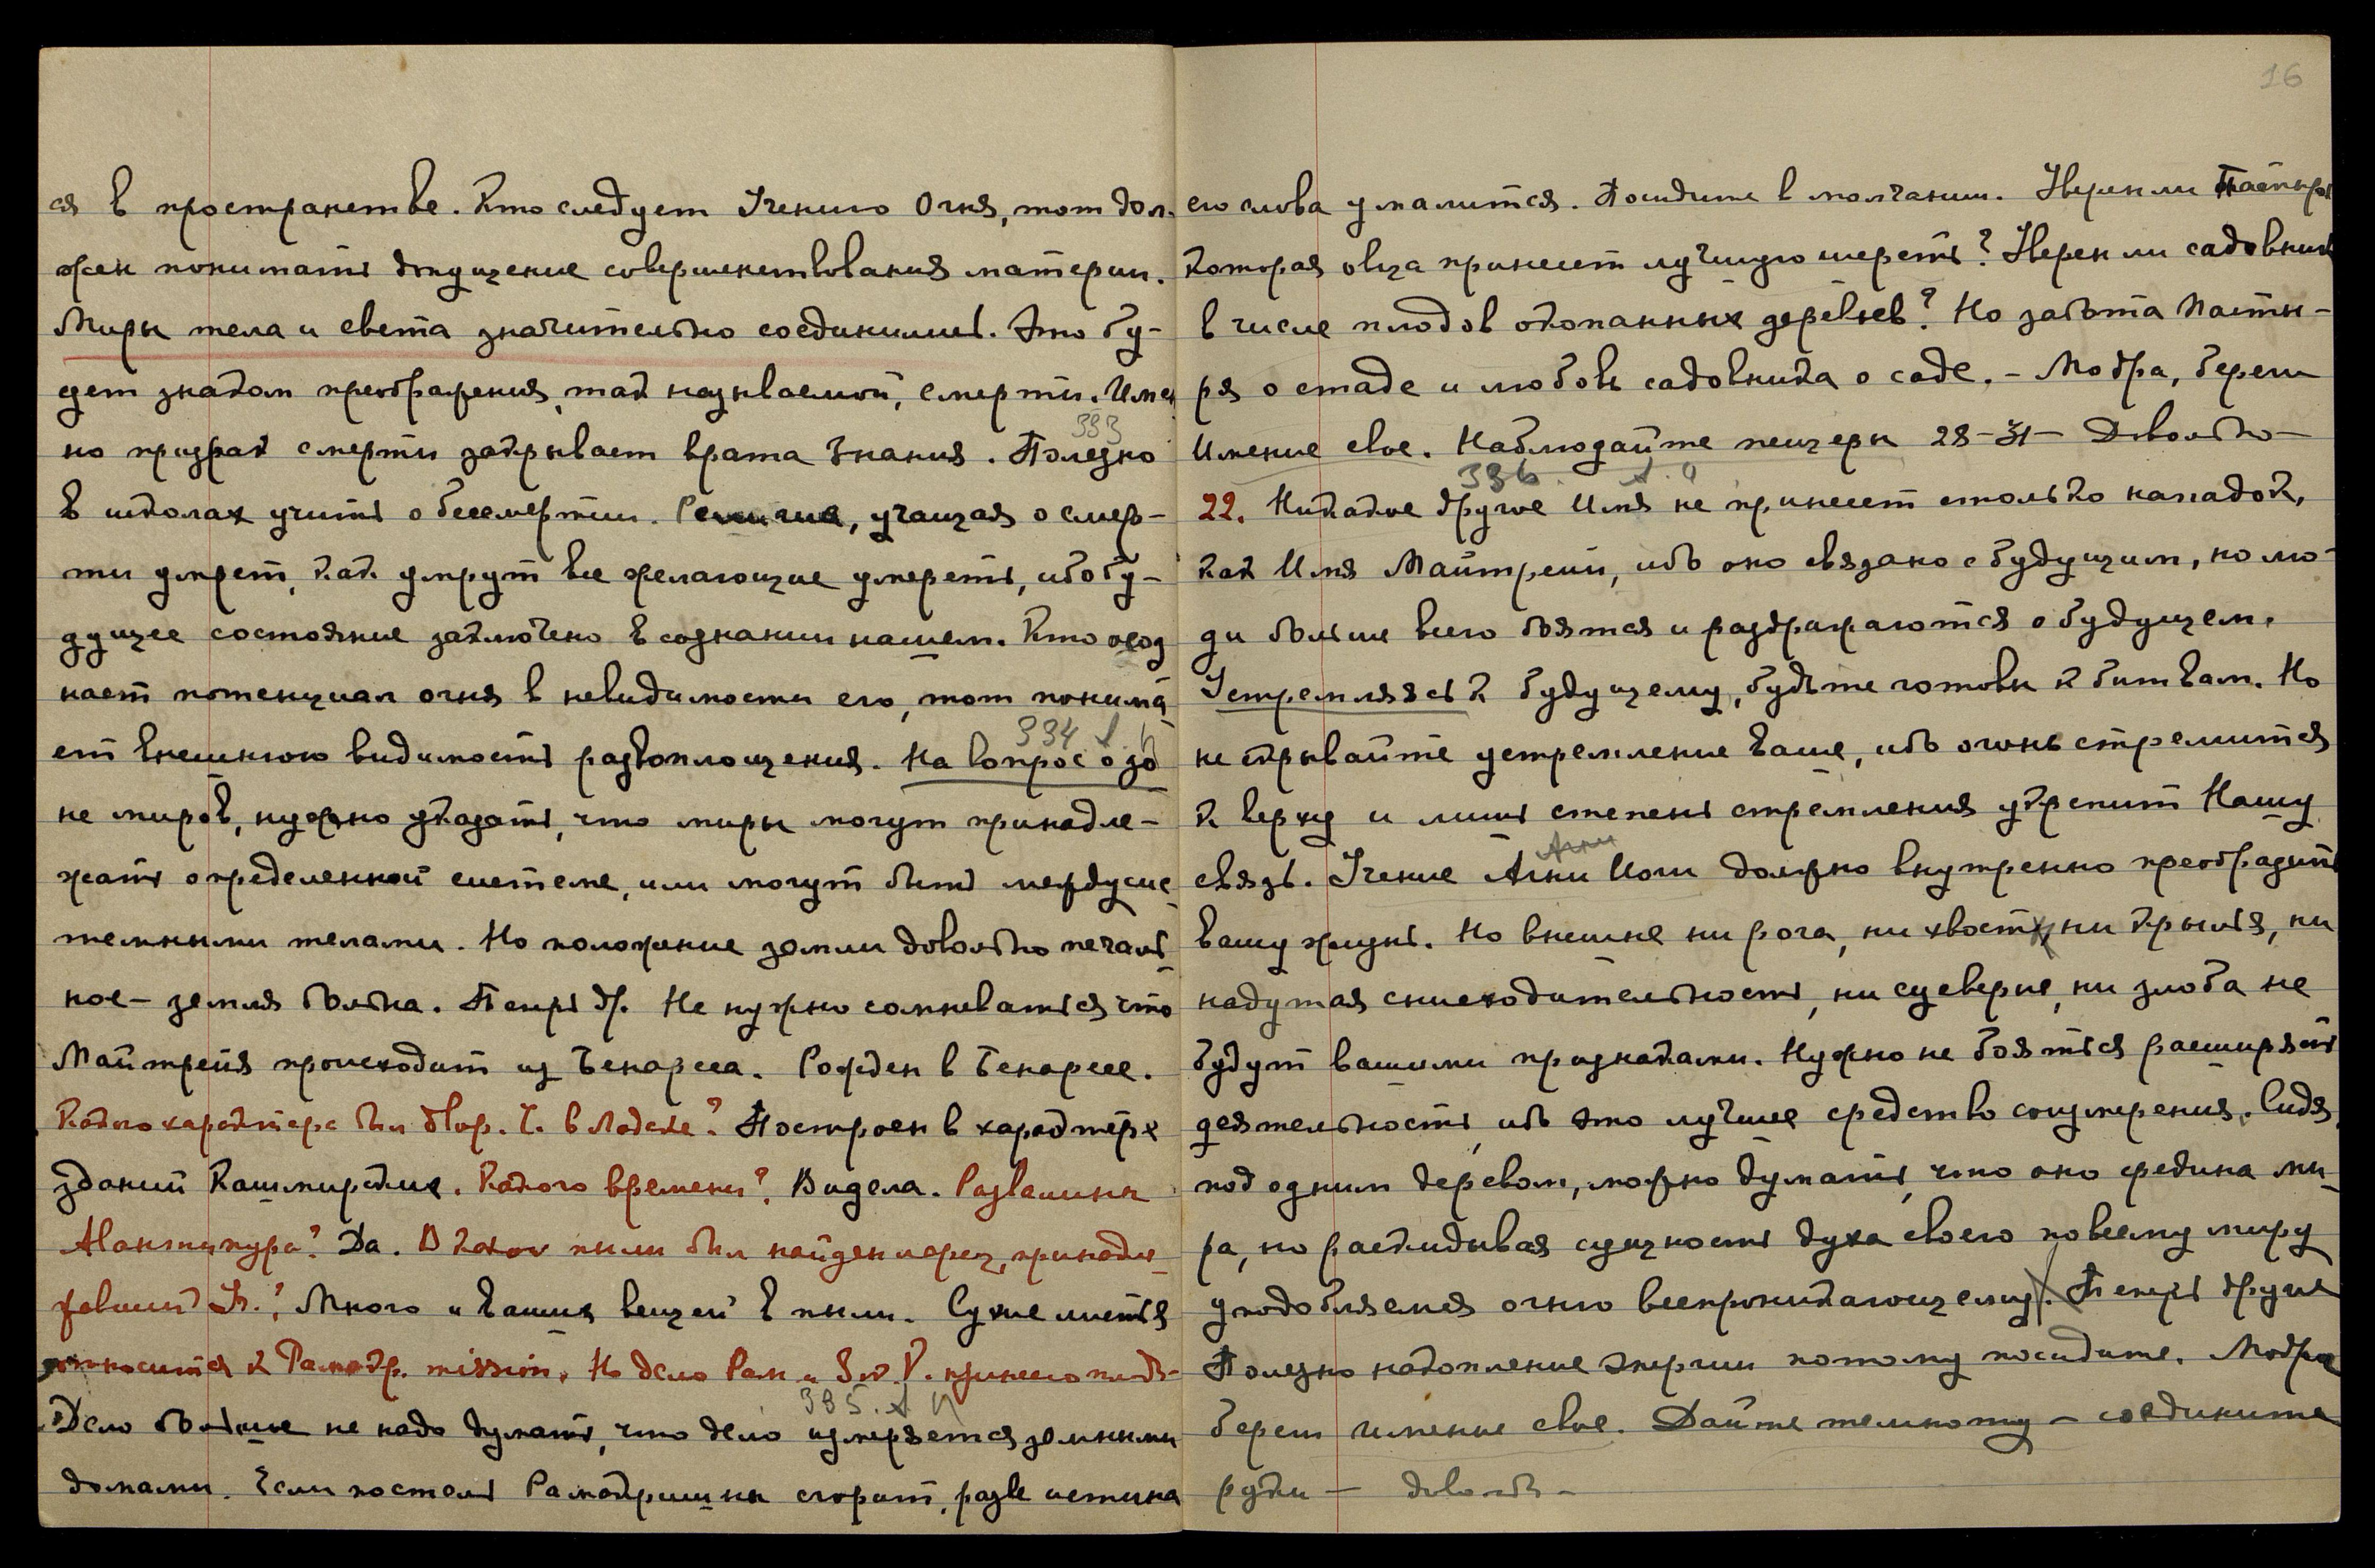 ся в пространстве. Кто следует Учению Огня, тот дол-
жен понимать ощущение совершенствования материи.
Миры тела и света значительно соединились. Это бу-
дет знаком преображения, так называемой, смерти. Имен
333
но призрак смерти закрывает врата знания. Полезно
в школах учить о бессмертии. Религия, учащая о смер-
ти умрет, как умрут все желающие умереть, ибо бу-
дущее состояние заключено в сознании нашем. Кто осоз
нает потенциал огня в невидимости его, тот понима
334
ет внешнюю видимость развоплощения. На вопрос о зо
не миров, нужно указать, что миры могут принадле-
жать определенной системе, или могут быть междусис
темными телами. Но положение земли довольно печаль
ное – земля больна. Теперь др. Не нужно сомневаться что
Майтрейя происходит из Бенареса. Рожден в Бенаресе.
Какого характера был двор. Ч. в Ладаке? Построен в характере
зданий Кашмирских. Какого времени? Видела. Развалины
Авантипура? Да. В пыли был найден принадле
жавший Много и Ваших вещей в пыли. Сухие листья
относится к Рамакр. mission. Но дело Рам. и Sw. V. принесло плоды
335.
Дело больше не надо думать, что дело измеряется земными
домами. Если постель Рамакришны сгорит, разве истина
16
его слова умалится. Посидите в молчании. Уверен ли Пастырь
которая овца принесет лучшую шерсть? Уверен ли садовник
в числе плодов окопанных деревьев? Но забота Пасты-
ря о стаде и любовь садовника о саде. – Мобра, береги
Имение свое. Наблюдайте пещеры 28-31 – Довольно –
336.
22. Никакое другое Имя не принесет столько нападок,
как Имя Майтрейи, ибо оно связано с будущим, но лю-
ди больше всего боятся и раздражаются о будущем.
Устремляясь к будущему, будьте готовы к битвам. Но
не скрывайте устремление Ваше, ибо огонь стремится
к верху и лишь степень стремления укрепит Нашу
Агни
связь. Учение Агни Йоги должно внутренно преобразить
Вашу жизнь. Но внешне ни рога, ни хвост, ни крылья, ни
надутая снисходительность, ни суеверие, ни злоба не
будут вашими признаками. Нужно не бояться расширять
деятельность, ибо это лучшее средство соизмерения. Сидя
под одним деревом, можно думать, что оно средина ми
ра, но раскидывая сущность духа своего по всему миру
уподобляемся огню всепроникающему. Теперь другое
Полезно накопление энергии потому посидите. Мобра
берет имение свое. Дайте темноту – соедините
руки – довольно –